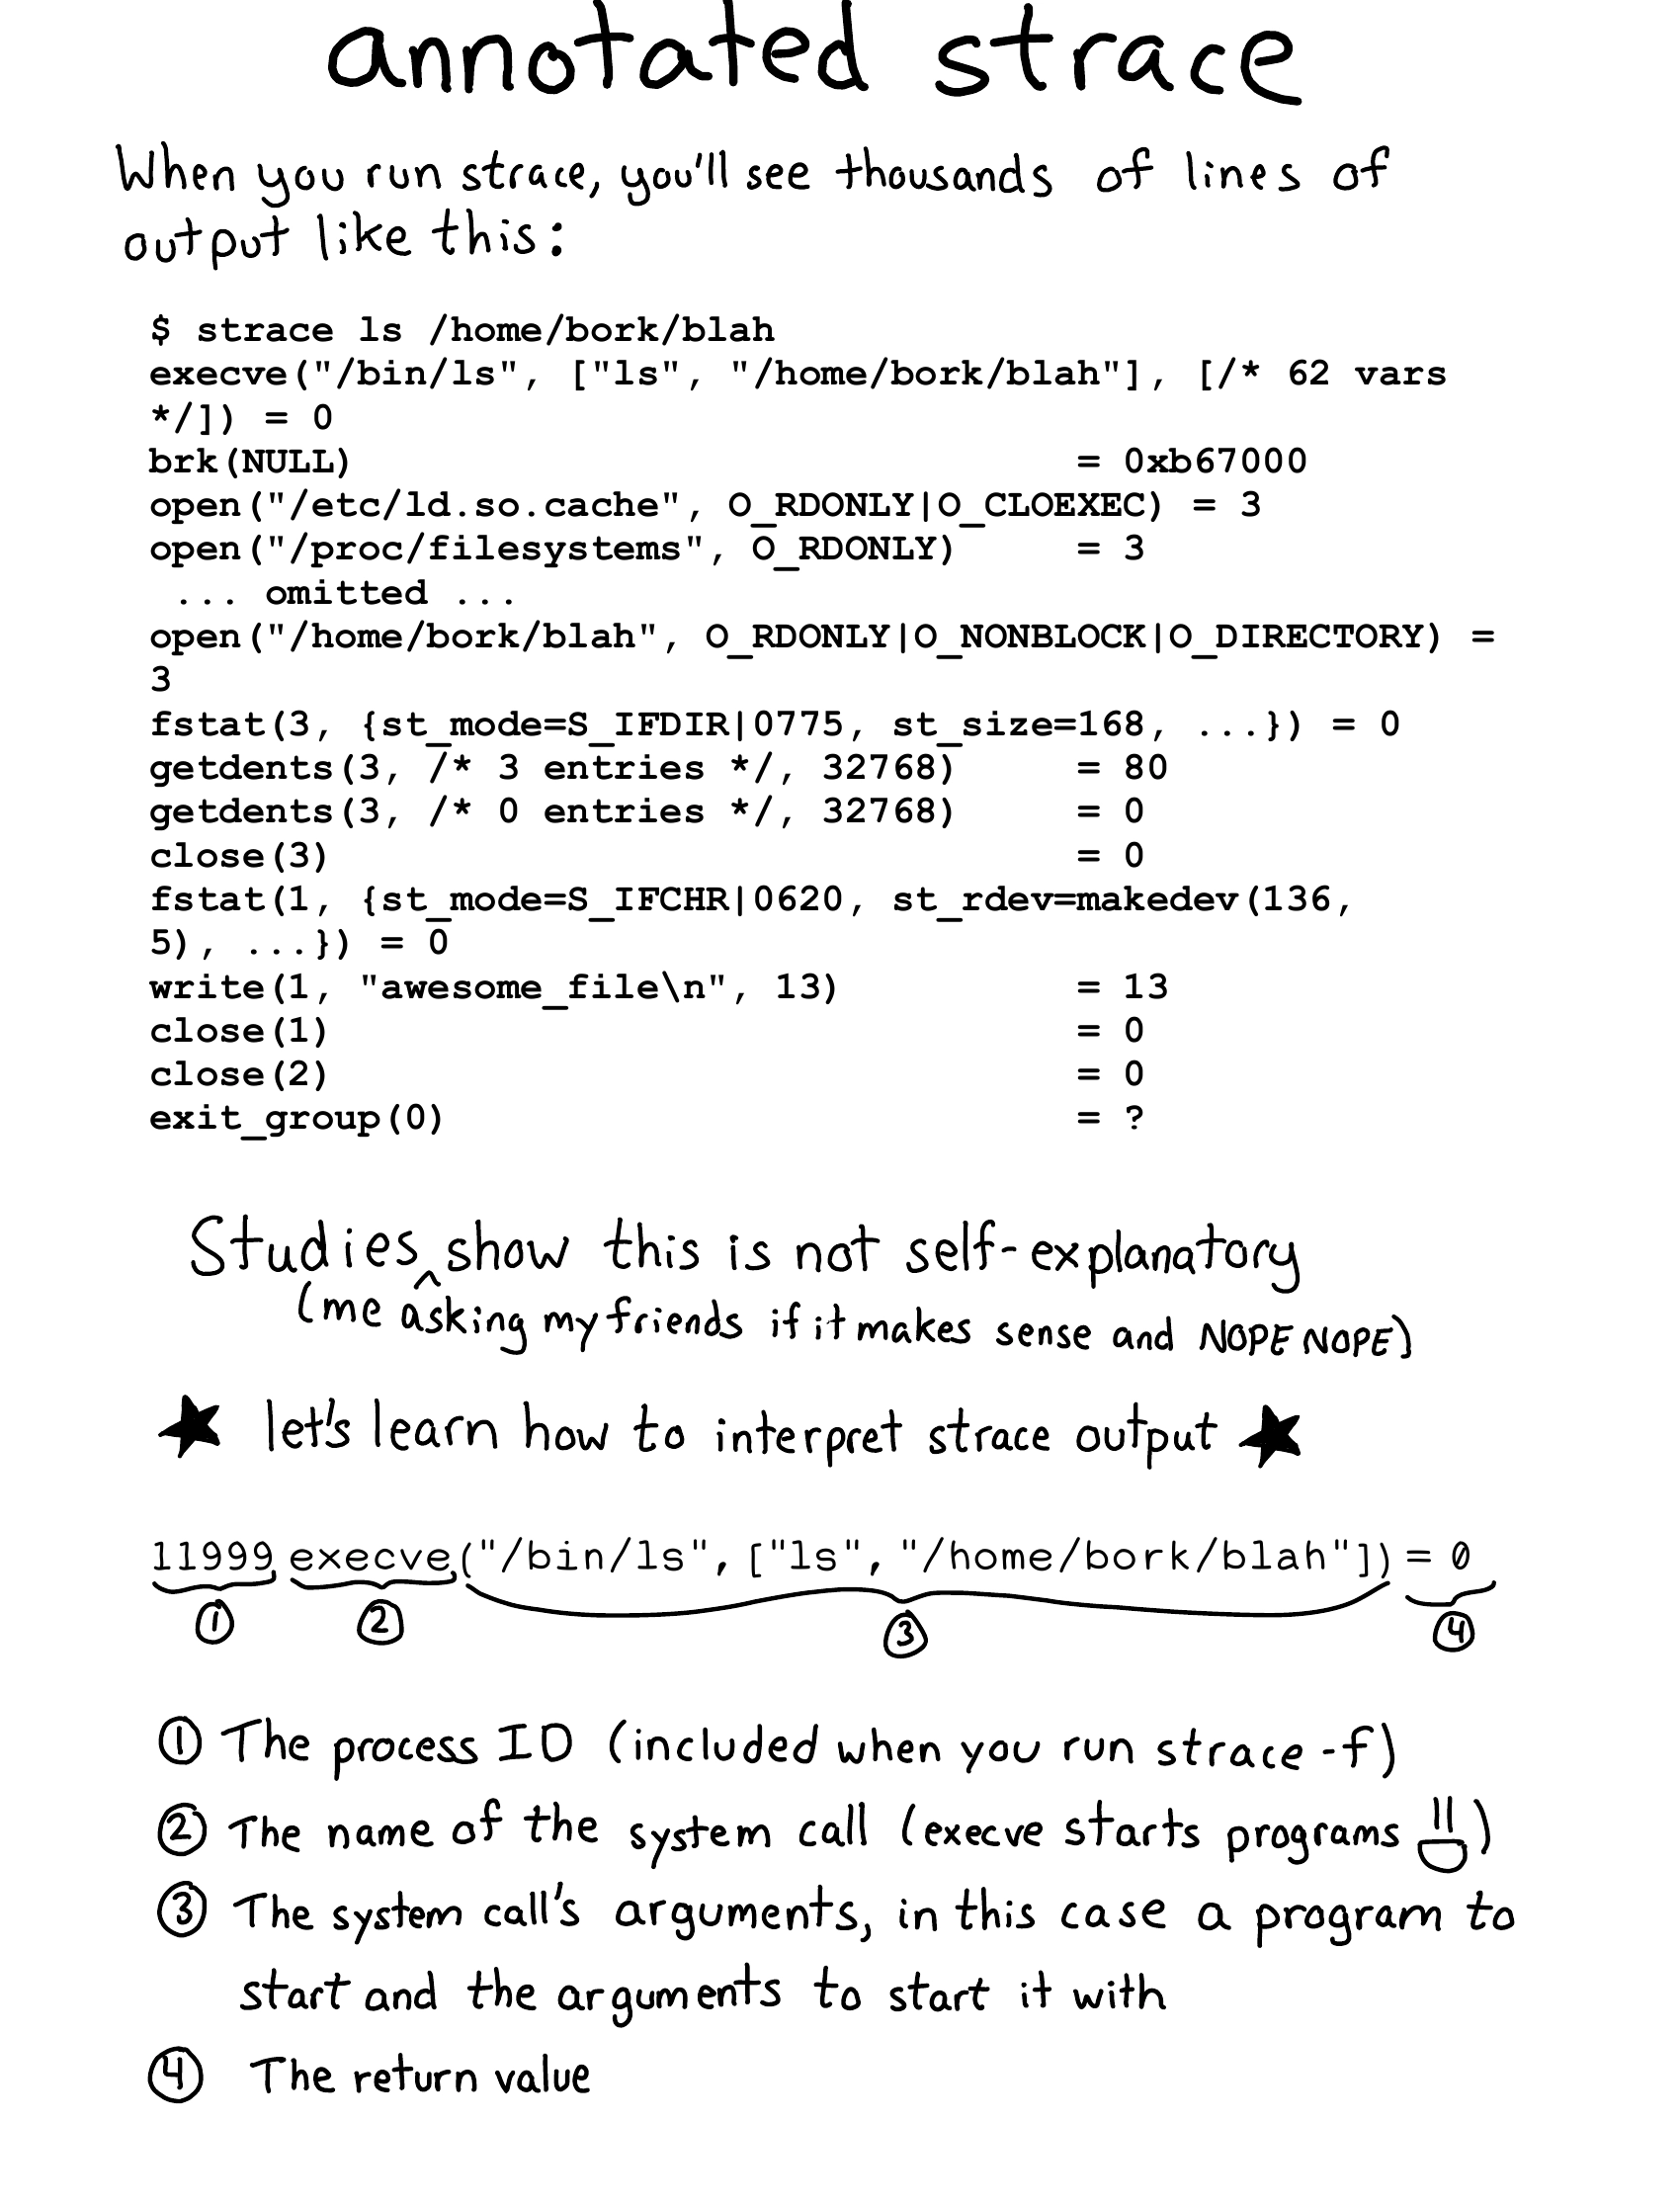 annotated strace
When you run strace, you'll see thousands of lines of
output like this:
$ strace ls /home/bork/blah
execve("/bin/ls", ["ls", "/home/bork/blah"], [/* 62 vars
*/]) = 0
brk(NULL)                               = 0xb67000
open("/etc/ld.so.cache", O_RDONLY|O_CLOEXEC) = 3
open("/proc/filesystems", O_RDONLY)     = 3
 ... omitted ...
open("/home/bork/blah", O_RDONLY|O_NONBLOCK|O_DIRECTORY) =
3
fstat(3, {st_mode=S_IFDIR|0775, st_size=168, ...}) = 0
getdents(3, /* 3 entries */, 32768)     = 80
getdents(3, /* 0 entries */, 32768)     = 0
close(3)                                = 0
fstat(1, {st_mode=S_IFCHR|0620, st_rdev=makedev(136,
5), ...}) = 0
write(1, "awesome_file\n", 13)          = 13
close(1)                                = 0
close(2)                                = 0
exit_group(0)                           = ?
Studies ^ show this is not self-explanatory
(me asking my friends if it makes sense and NOPE NOPE)
★ let's learn how to interpret strace output ★
11999 execve("/bin/ls", ["ls", "/home/bork/blah"]) = 0
① ② ③ ④
① The process ID (included when you run strace -f)
② The name of the system call (execve starts programs =D)
③ The system call's arguments, in this case a program to
start and the arguments to start it with
④ The return value